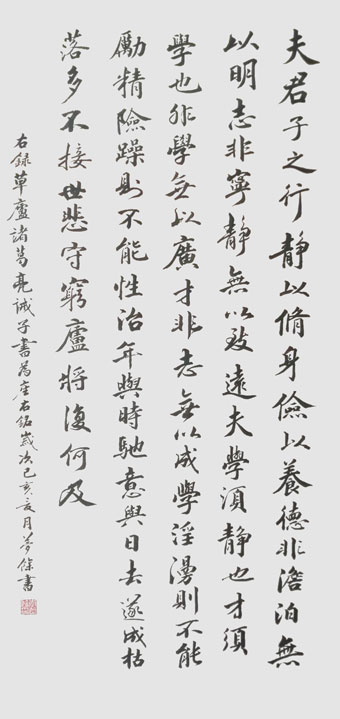 夫君子之行靜以脩身儉以養德非澹泊無
以明志非寧靜無以致遠夫學須靜也才須
學也非學無以廣才非志無以成學淫漫則不能
勵精險躁則不能性治年與時馳意與日去遂成枯
落多不接世悲守窮廬將復何及
右錄草廬諸葛亮誡子書為座右銘歲次己亥亥月夢條書